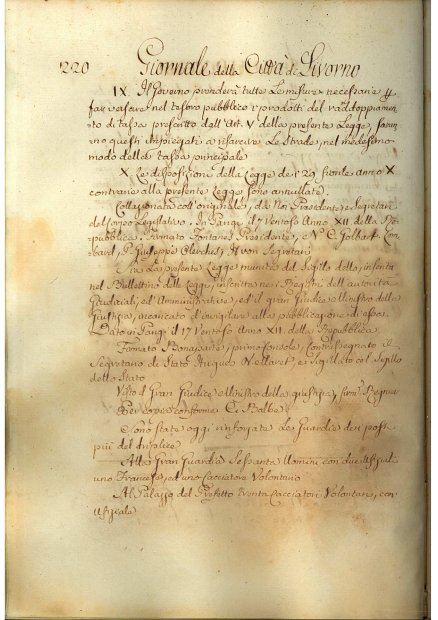 220 Giornale della Città di Livorno
IX. Il Governo prenderà tutte le misure necessarie p
far versare nel tesoro pubblico i prodotti del raddoppiamen
to di tassa prescritto dall'Art. V della presente Legge, saran
no questi impiegati a risarcire le strade, nel medesimo
modo della tassa principale
X. Le disposizioni della Legge de' 29 anno X
contrarie alla presente Legge sono annullate.
Collazionato coll'originale, da Noi Presidente, e Segretarj
del Corpo Legislativo. In Parigi il 7 Ventoso Anno XII della Re
pubblica. Firmato Fontanes Presidente, e
Segretarj
Sia la presente Legge munita del Sigillo dello, inserita
nel Bullettino delle Leggi, inscritta nei Registri dell'autorità
Giudiziali, ed Amministrative, ed il gran Giudice e Ministro della
Giustizia, incaricato d'invigilare alla pubblicazione di essa.
Dato in Parigi il 17 Ventoso Anno XII della Repubblica.
Firmato Bonaparte, primo Console, Contrassegnato il
Segretario di Stato Ugues Maret, e sigillato col Sigillo
dello Stato
Visto il Gran Giudice e Ministro della giustizia, firm. Regnier
Per copia conforme C. Balbe
Sono state oggi rinforzate le Guardie dei posti
più del solito
Alla Gran Guardia Sessanta Uomini con due Ufiziali
uno Francese, ed uno Cacciatore Volontario
Al Palazzo del Prefetto trenta Cacciatori Volontarj, con
Ufiziale